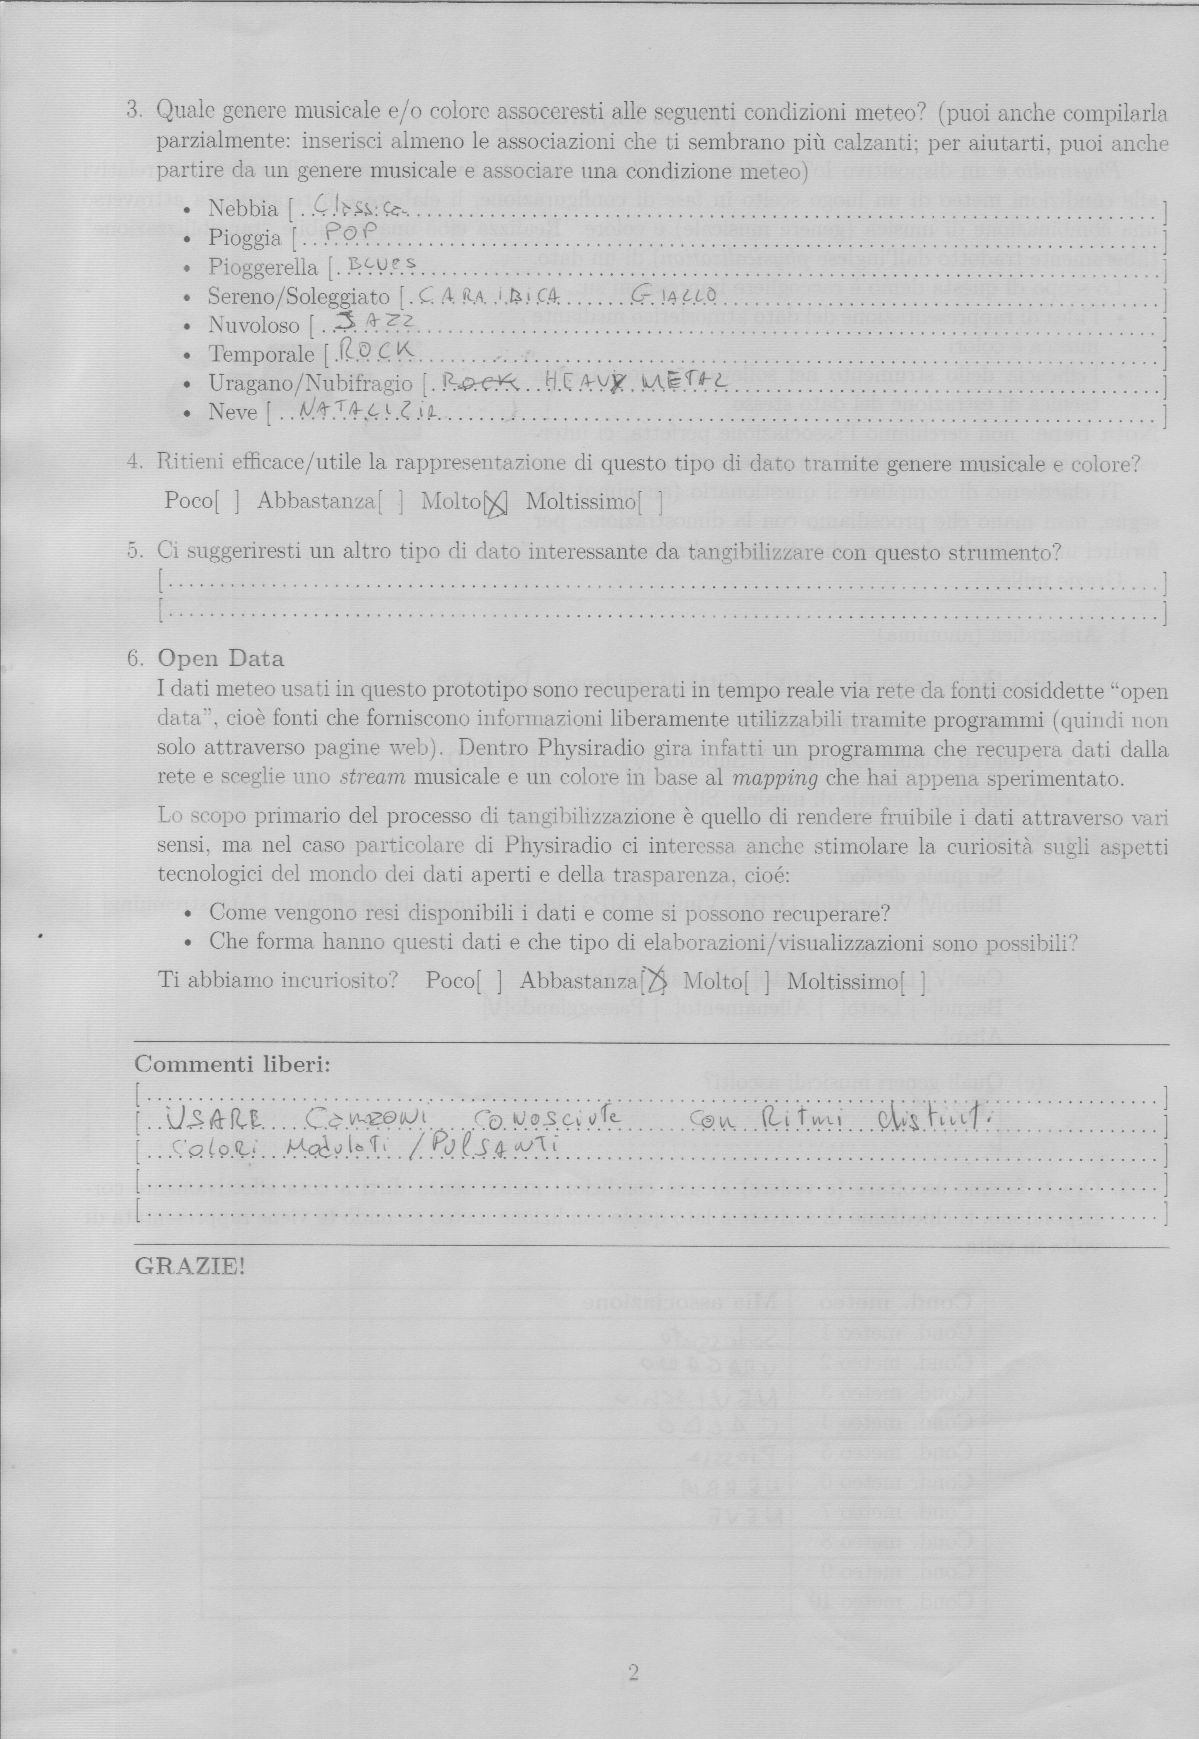 3. Quale genere musicale e/o colore assoceresti alle seguenti condizioni meteo? (puoi anche compilarla
parzialmente: inserisci almeno le associazioni che ti sembrano più calzanti; per aiutarti, puoi anche
partire da un genere musicale e associare una condizione meteo)
• Nebbia [ Classica ]
• Pioggia [ POP ]
• Pioggerella [ BLUES ]
• Sereno/Soleggiato [ CARAIBICA GIALLO ]
• Nuvoloso [ JAZZ ]
• Temporale [ ROCK ]
• Uragano/Nubifragio [ ROCK HEAVY METAL ]
• Neve [ NATALIZIA ]
4. Ritieni efficace/utile la rappresentazione di questo tipo di dato tramite genere musicale e colore?
Poco[ ] Abbastanza[ ] Molto[X] Moltissimo[ ]
5. Ci suggeriresti un altro tipo di dato interessante da tangibilizzare con questo strumento?
[ ]
[ ]
6. Open Data
I dati meteo usati in questo prototipo sono recuperati in tempo reale via rete da fonti cosiddette “open
data”, cioè fonti che forniscono informazioni liberamente utilizzabili tramite programmi (quindi non
solo attraverso pagine web). Dentro Physiradio gira infatti un programma che recupera dati dalla
rete e sceglie uno stream musicale e un colore in base al mapping che hai appena sperimentato.
Lo scopo primario del processo di tangibilizzazione è quello di rendere fruibile i dati attraverso vari
sensi, ma nel caso particolare di Physiradio ci interessa anche stimolare la curiosità sugli aspetti
tecnologici del mondo dei dati aperti e della trasparenza, cioé:
• Come vengono resi disponibili i dati e come si possono recuperare?
• Che forma hanno questi dati e che tipo di elaborazioni/visualizzazioni sono possibili?
Ti abbiamo incuriosito? Poco[ ] Abbastanza[X] Molto[ ] Moltissimo[ ]
Commenti liberi:
[ ]
[ USARE CANZONI CONOSCIUTE CON RITMI distinti ]
[ COLORI MODULATI / PULSANTI ]
[ ]
[ ]
GRAZIE!
2